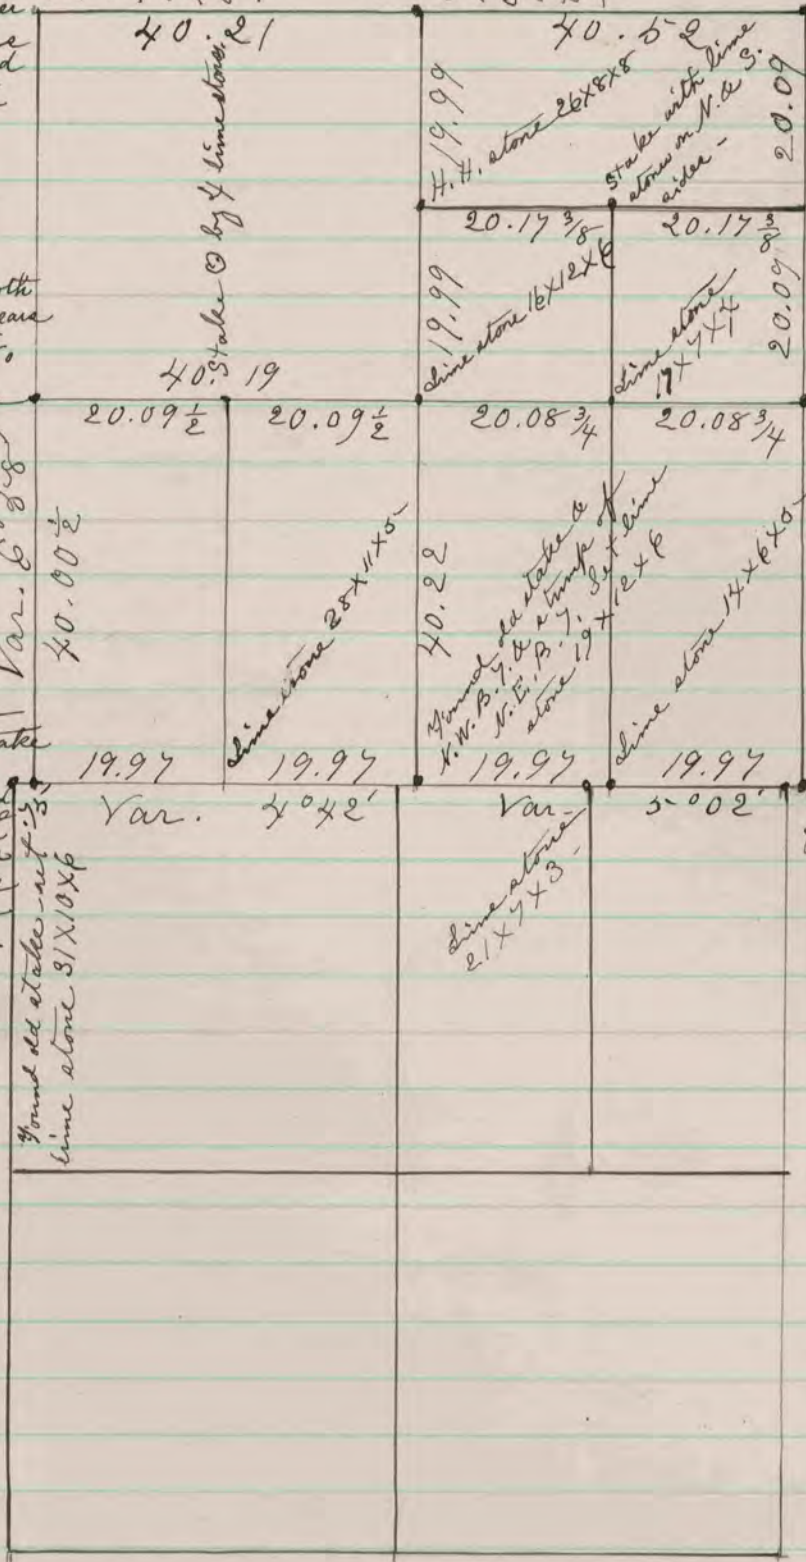 40.21
40.52
Stake ⊙ by 4 lime stones.
19.99
H.H. stone 26X8X8
Stake with lime
stones on N. & S.
sides -
20.09
20.17 3/8
20.17 3/8
19.99
Lime stone 16X12X6
Lime stone
17X7X7
20.09
40.19
20.09 1/2
20.09 1/2
20.08 3/4
20.08 3/4
Var. 6°38'
40.00 1/2
Lime stone 28X11X5-
40.22
Found old stake &
N.W. B.T. & stump of
N.E. B.T. Set lime
stone 19X12X6
Lime stone 14X6X5-
19.97
19.97
19.97
19.97
Var. 4°42'
Var- 5°02'
Found old stake - set
lime stone 31X10X6
Lime stone-
21X7X3-